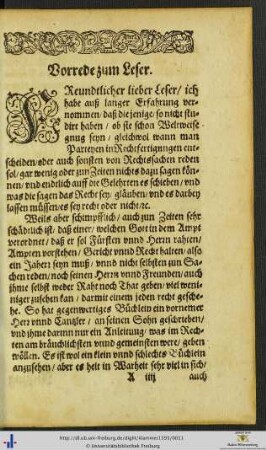 Vorrede zum Leser.
FReundtlicher lieber Leser/ ich
habe auß langer Erfahrung ver-
nommen/ daß die jenige/ so nicht stu-
dirt haben/ ob sie schon Weltverse-
gnug seyn/ gleichwol wann man
Partheyen in Rechtfertigungen ent-
scheiden/ oder auch sonsten von Rechtssachen reden
sol/ gar wenig oder zun Zeiten nichts dazu sagen kön-
nen/ vnd endtlich auff die Gelehrten es schieben/ vnd
was die sagen das Recht sey/ gläuben/ vnd es darbey
lassen müssen/ es sey recht oder nicht/ ꝛc.
Weils aber schimpfflich/ auch zun Zeiten sehr
schädtlich ist/ daß einer/ welchen Gott in dem Ampt
verordnet/ daß er sol Fürsten vnnd Herrn rahten/
Ampten vorstehen/ Gericht vnnd Recht halten/ also
ein Jaherr seyn muß/ vnnd nicht selbsten zun Sa-
chen reden/ noch seinen Herrn vnnd Freunden/ auch
ihme selbst weder Raht noch That geben/ viel weni-
niger zusehen kan/ darmit einem jeden recht gesche-
he. So hat gegenwertiges Büchlein ein vornemer
Herr vnnd Cantzler/ an seinen Sohn geschrieben/
vnd ihme darinn nur ein Anleitung/ was im Rech-
ten am bräuchlichsten vnnd gemeinsten were/ geben
wöllen. Es ist wol ein klein vnnd schlechts Büchlein
anzusehen/ aber es helt in Warheit sehr viel in sich/
A iiij auch
http://dl.ub.uni-freiburg.de/diglit/
© Universitätsbibliothek Freiburg